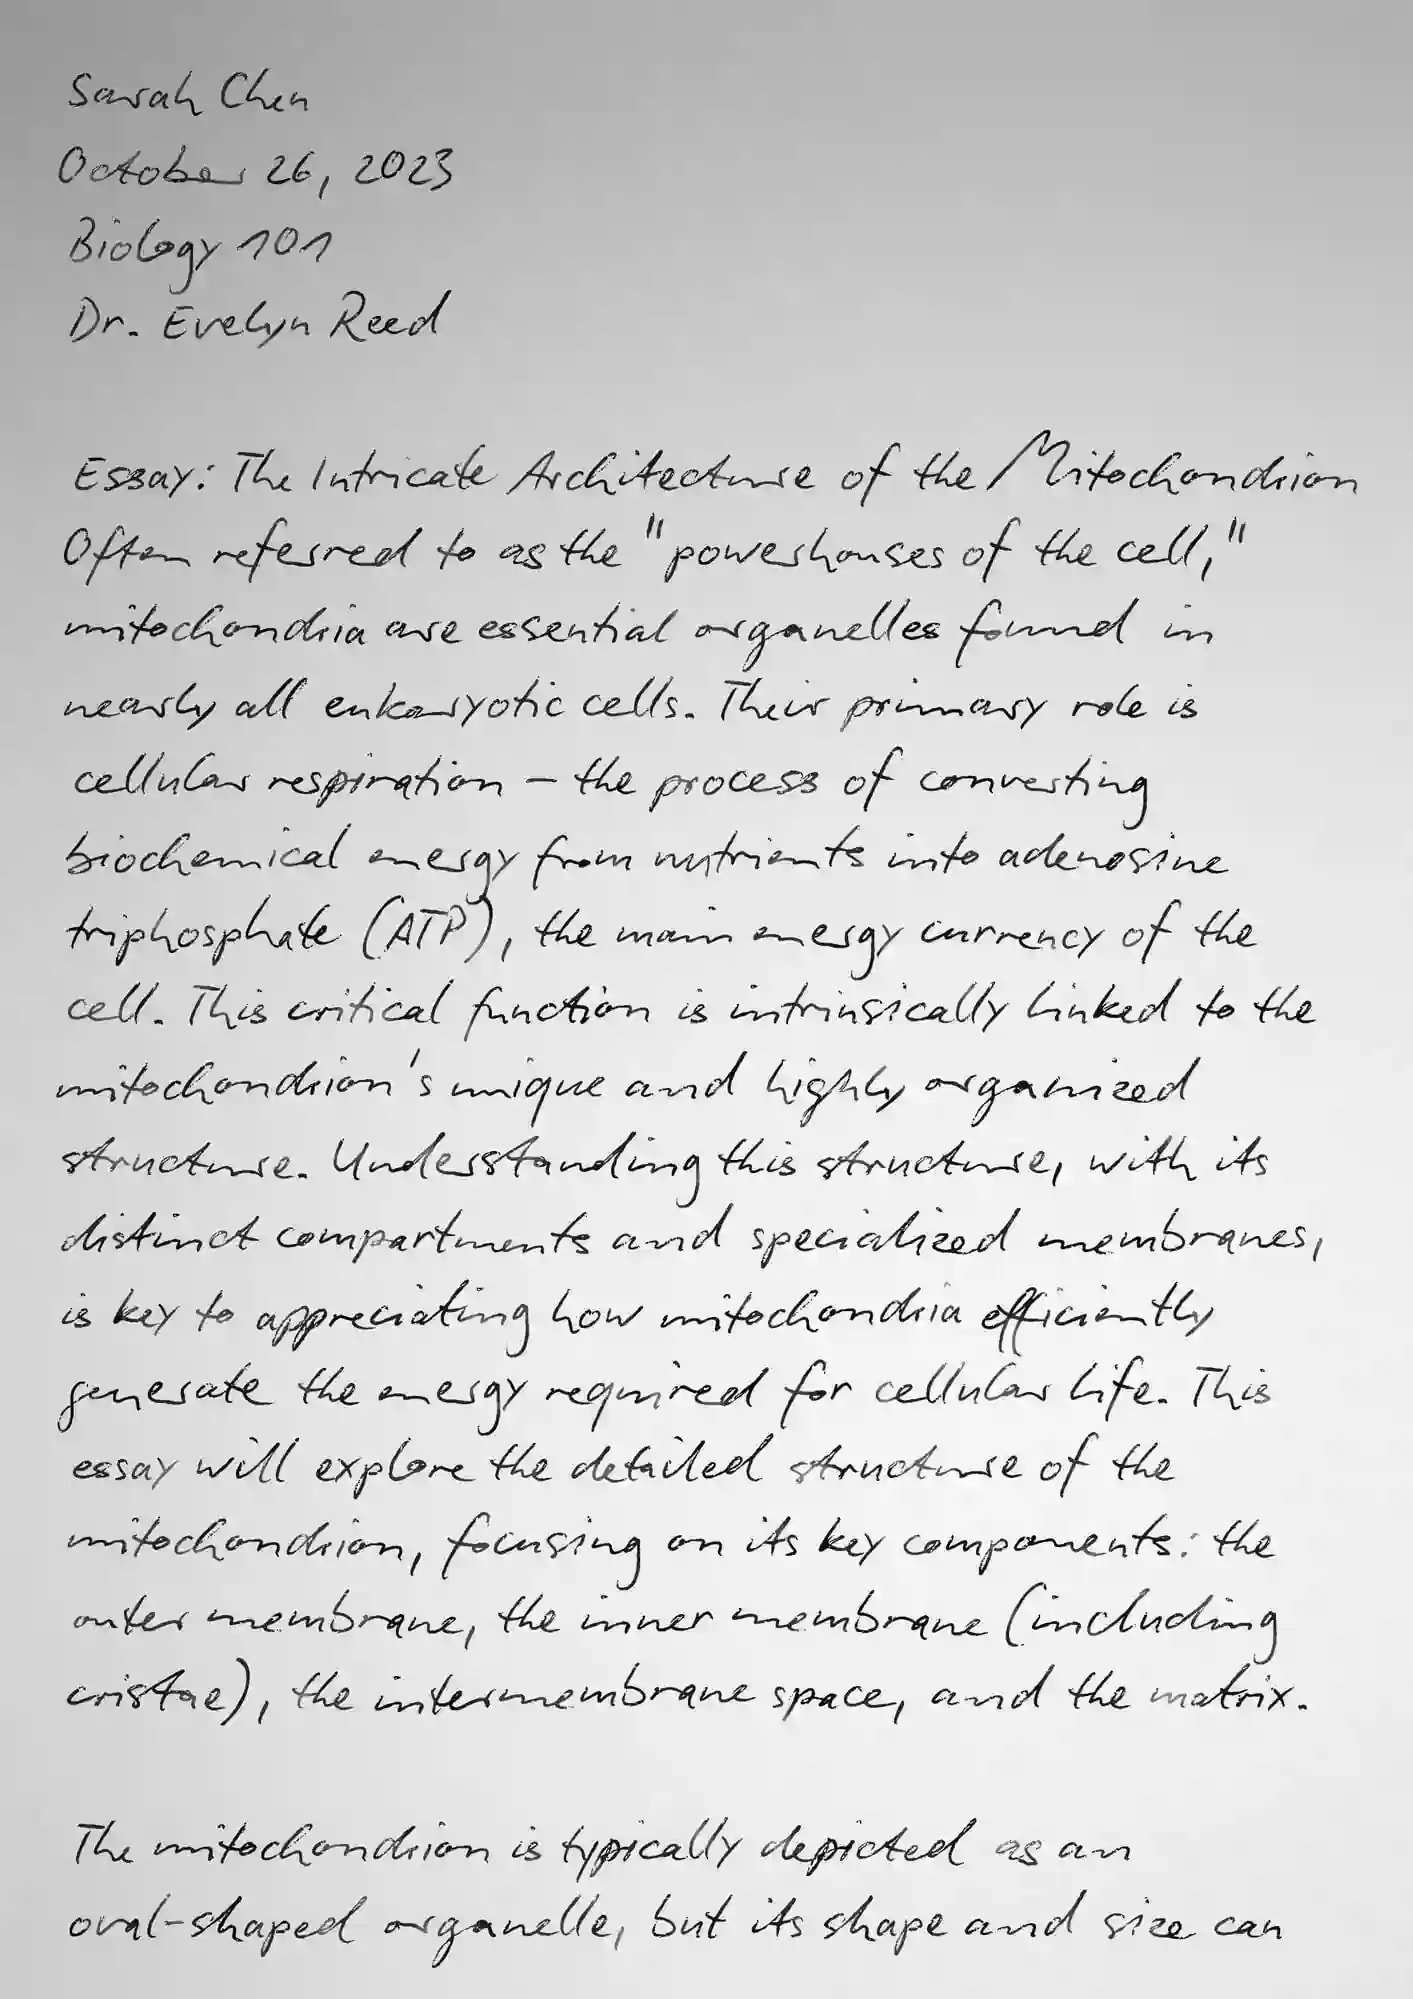 Sarah Chen
October 26, 2023
Biology 101
Dr. Evelyn Reed
Essay: The Intricate Architecture of the Mitochondrion
Often referred to as the "powerhouses of the cell,"
mitochondria are essential organelles found in
nearly all eukaryotic cells. Their primary role is
cellular respiration – the process of converting
biochemical energy from nutrients into adenosine
triphosphate (ATP), the main energy currency of the
cell. This critical function is intrinsically linked to the
mitochondrion's unique and highly organized
structure. Understanding this structure, with its
distinct compartments and specialized membranes,
is key to appreciating how mitochondria efficiently
generate the energy required for cellular life. This
essay will explore the detailed structure of the
mitochondrion, focusing on its key components: the
outer membrane, the inner membrane (including
cristae), the intermembrane space, and the matrix.
The mitochondrion is typically depicted as an
oval-shaped organelle, but its shape and size can